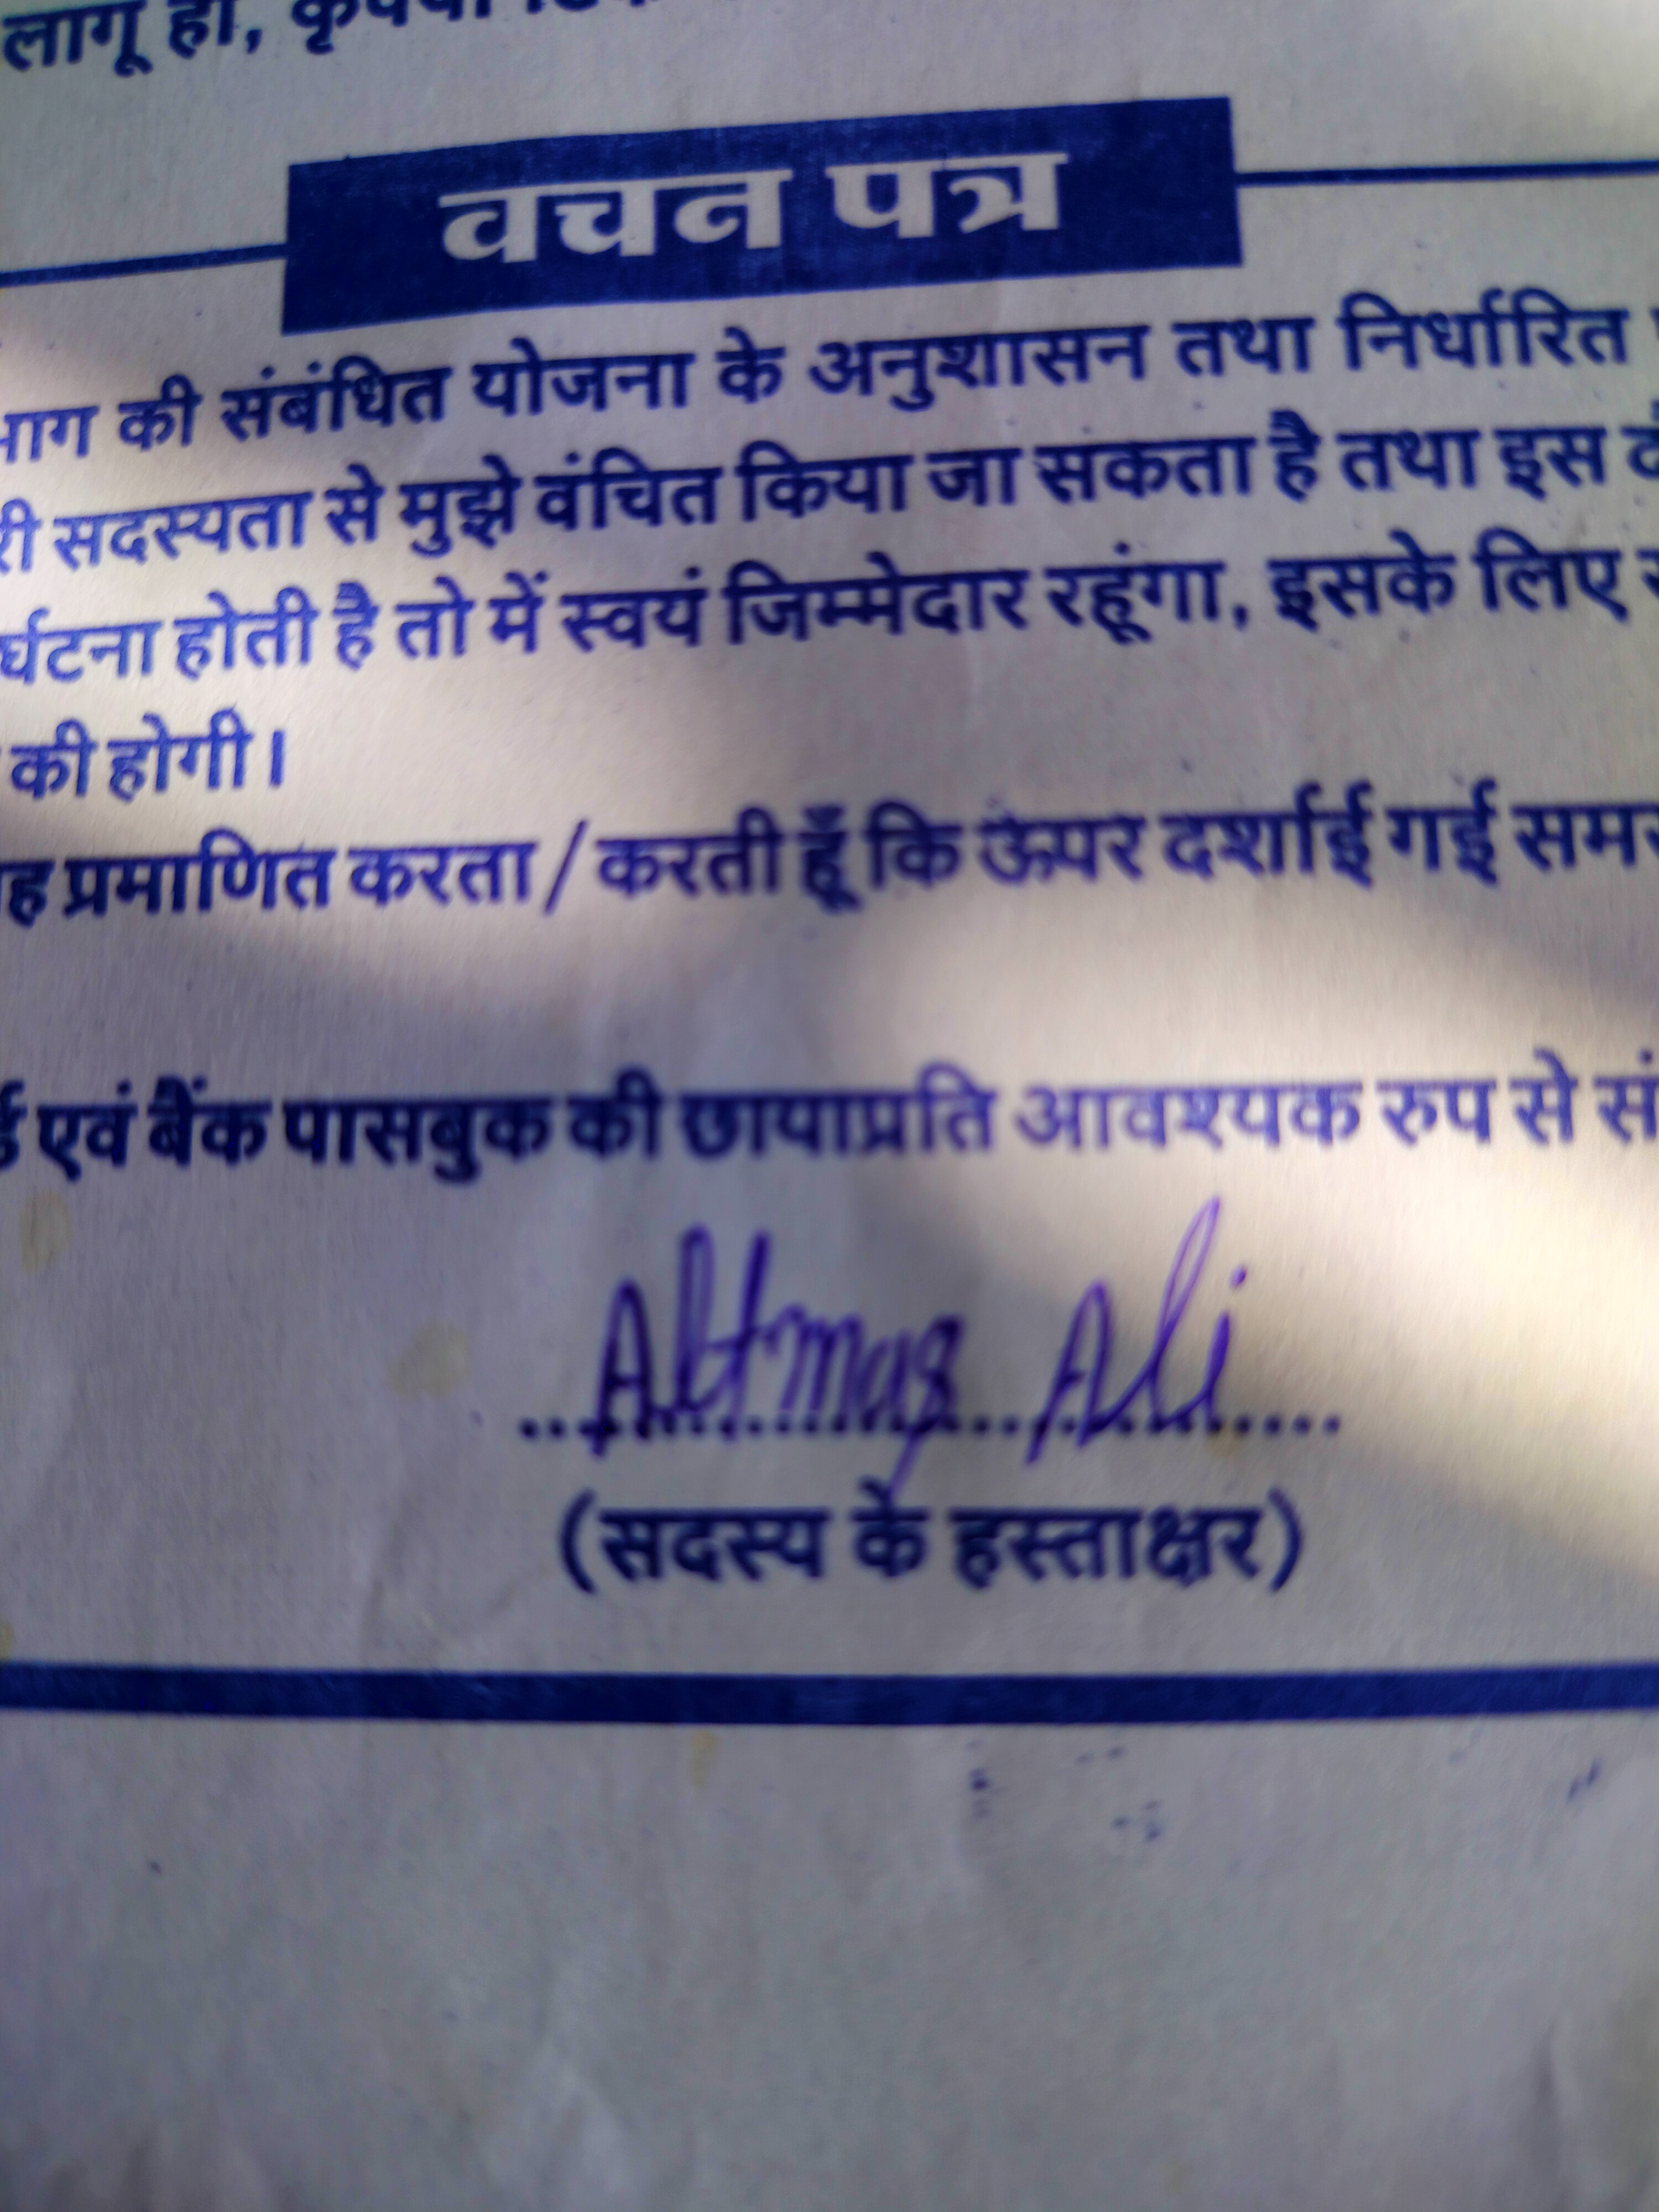 लागू हो,
वचन पत्र
की संबंधित योजना के अनुशासन तथा निर्धारित
सदस्यता से मुझे वंचित किया जा सकता है तथा इस
र्घटना होती है तो में स्वयं जिम्मेदार रहूंगा, इसके लिए
की होगी।
ह प्रमाणित करता / करती हूँ कि ऊपर दर्शाई गई
एवं बैंक पासबुक की छायाप्रति आवश्यक रुप से सं
Altmas Ali
(सदस्य के हस्ताक्षर)